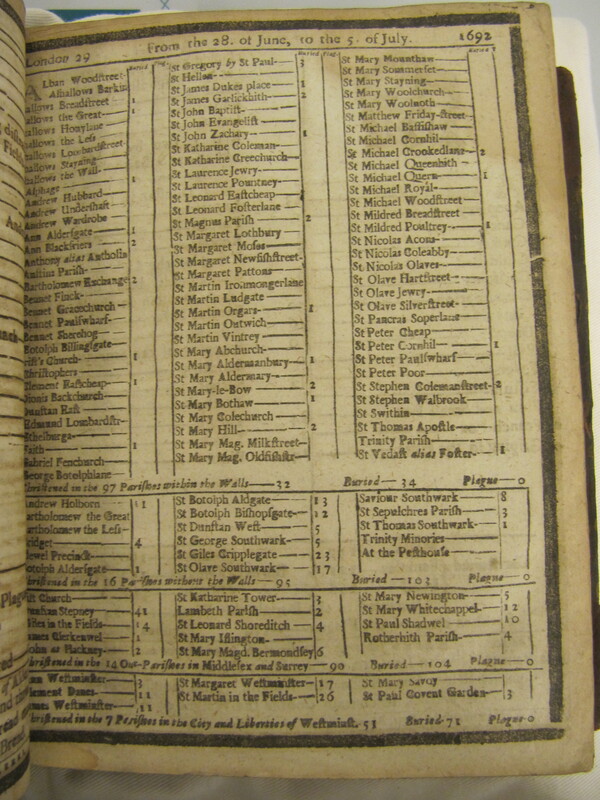 London 29 From the 28. of June, to the 5. of July. 1692
Buried Plag.
Alban Woodstreet
Alhallows Barkin
allows Breadstreet 1
allows the Great 1
allows Honylane
allows the Less
allows Lombardstreet
allows Stayning
allows the Wall 1
Alphage
Andrew Hubbard
Andrew Undershaft
Andrew Wardrobe
Ann Aldersgate 1
Ann Blackfriers 2
Anthony alias Antholin
Austins Parish
Bartholomew Exchange 2
Bennet Finck
Bennet Gracechurch
Bennet Paulswharf
Bennet Sherehog
Botolph Billingsgate
rist's Church 1
hristophers
Clement Eastcheap 1
Dionis Backchurch
Dunstan East
Edmund Lombardstr
Ethelburga
Faith 1
Gabriel Fenchurch
George Botolphlane
Buried Plag.
St Gregory by St Paul 3
St Hellen
St James Dukes place 1
St James Garlickhith 2
St John Baptist
St John Evangelist
St John Zachary 1
St Katharine Coleman
St Katharine Creechurch
St Laurence Jewry
St Laurence Pountney
St Leonard Eastcheap
St Leonard Fosterlane
St Magnus Parish 2
St Margaret Lothbury
St Margaret Moses
St Margaret Newfishstreet
St Margaret Pattons
St Martin Ironmongerlane
St Martin Ludgate
St Martin Orgars 1
St Martin Outwich
St Martin Vintrey
St Mary Abchurch
St Mary Aldermanbury 1
St Mary Aldermary
St Mary-le-Bow 2
St Mary Bothaw 1
St Mary Colechurch
St Mary Hill 2
St Mary Mag. Milkstreet
St Mary Mag. Oldfishstr
Buried
St Mary Mounthaw
St Mary Sommerset
St Mary Stayning
St Mary Woolchurch
St Mary Woolnoth
St Matthew Friday-street
St Michael Bassishaw
St Michael Cornhil
St Michael Crookedlane 2
St Michael Queenhith
St Michael Quern 1
St Michael Royal
St Michael Woodstreet
St Mildred Breadstreet
St Mildred Poultrey 1
St Nicolas Acons
St Nicolas Coleabby
St Nicolas Olaves
St Olave Hartstreet
St Olave Jewry
St Olave Silverstreet
St Pancras Soperlane
St Peter Cheap
St Peter Cornhil 1
St Peter Paulswharf
St Peter Poor
St Stephen Colemanstreet 2
St Stephen Walbrook
St Swithin
St Thomas Apostle
Trinity Parish
St Vedast alias Foster 1
hristened in the 97 Parishes within the Walls 32 Buried 34 Plague 0
Andrew Holborn 11
artholomew the Great
artholomew the Less
ridget 4
ewel Precinct
otolph Aldersgate 1
St Botolph Aldgate 13
St Botolph Bishopsgate 12
St Dunstan West 5
St George Southwark 5
St Giles Cripplegate 23
St Olave Southwark 17
Saviour Southwark 8
St Sepulchres Parish 3
St Thomas Southwark 1
Trinity Minories
At the Pesthouse
hristened in the 16 Parishes without the Walls 95 Buried 103 Plague 0
ist Church
unstan Stepney 41
iles in the Fields 14
ames Clerkenwel 1
ohn at Hackney 2
St Katharine Tower 3
Lambeth Parish 2
St Leonard Shoreditch 4
St Mary Islington
St Mary Magd. Bermondsey 6
St Mary Newington 5
St Mary Whitechappel 12
St Paul Shadwel 10
Rotherhith Parish 4
hristened in the 14 Out-Parishes in Middlesex and Surrey 90 Buried 104 Plague 0
Westminster 3
lement Danes 11
ames Westminster 11
St Margaret Westminster 17
St Martin in the Fields 26
St Mary Savoy
St Paul Covent Garden 3
hristened in the 7 Parishes in the City and Liberties of Westminst. 51 Buried 71 Plague 0